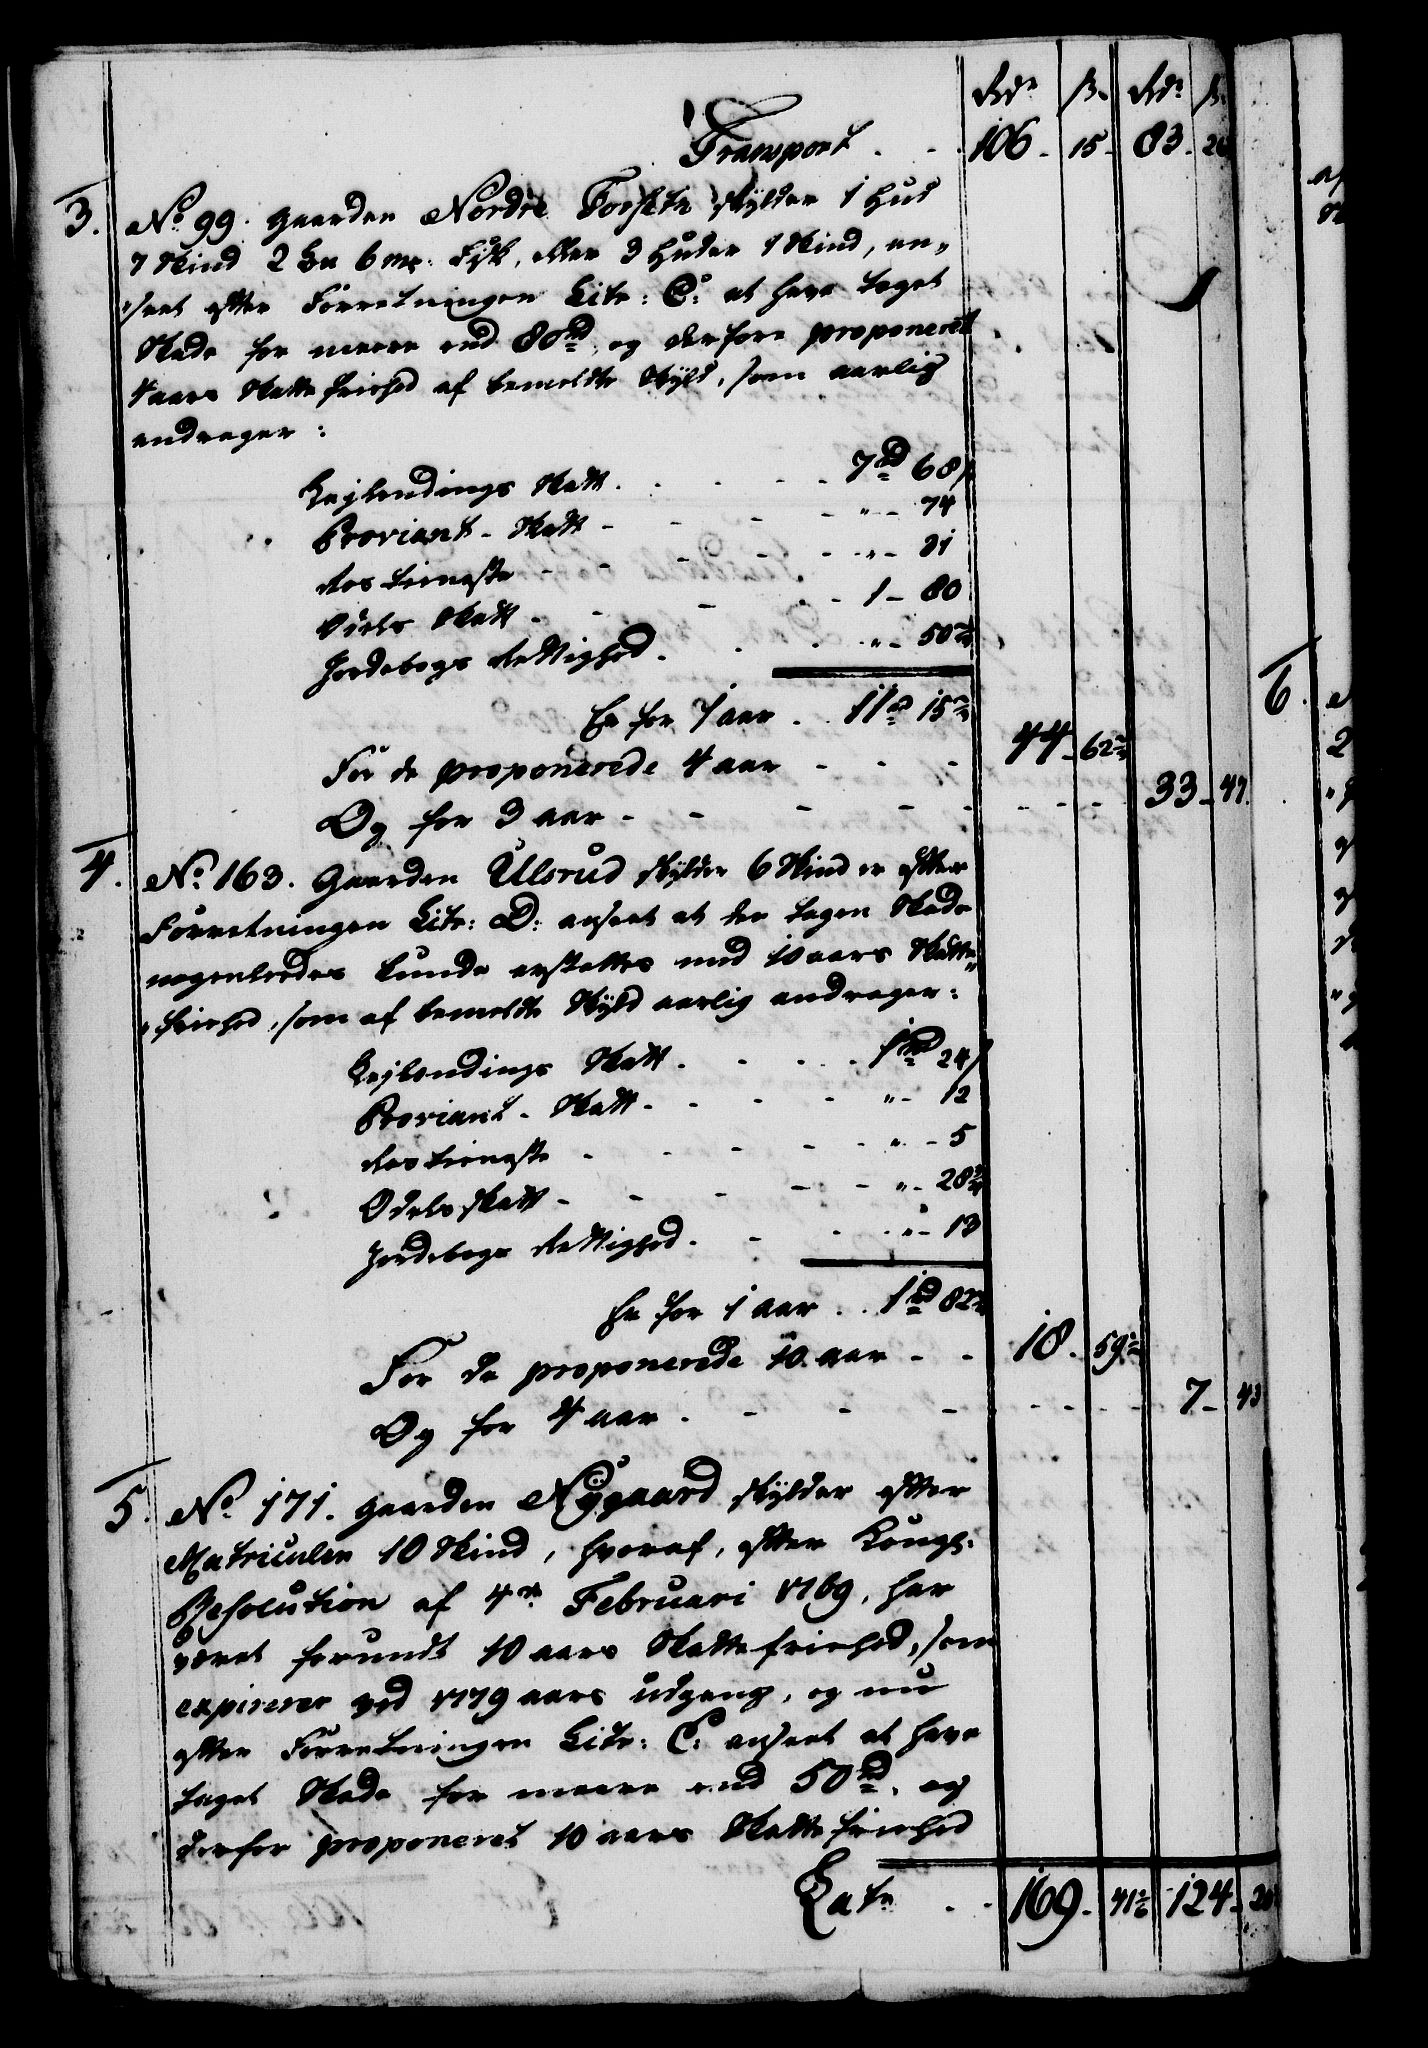 Rdr ß. Rdr ß.
Transport . . 106 - 15 - 83 -
3. No 99. Gaarden Nordre Forsetn skylder 1 Hud
7 Skind 2 6 mrk: Fisk, eller 3 Huder 1 Skind, an-
seet efter Forretningen Litr: C: at have taget
Skade for meere end 80 rd, og derfore proponeret
4 aars Skatte frihed af bemeldte Skyld, som aarlig
andrager:
Leylendings Skatt . . . 7 rd 68 ß
Proviant-Skatt - - - " - 74
Ros tieneste - - - " - 31
Odels Skatt - - - 1 - 80
Jordebogs Rettighed . . . " - 50
Er for 1 aar . . 11 rd 15
For de proponerede 4 aar - - - 44 - 62
Og for 3 aar - - - 33 - 47.
4. No 163. Gaarden Ulsrud skylder 6 Skind er efter
Forretningen Litr: D: anseet at den tagen Skade
nogenledes kunde erstattes med 10 aars Skatte-
frihed, som af bemeldte Skyld aarlig andrager:
Leylendings Skatt . . . 1 rd 24 ß
Proviant-Skatt - - - " - 12
Ros tieneste - - - " - 5
Odels skatt - - - " - 28
Jordebogs Rettighed . . . " - 13
Er for 1 aar . . 1 rd 82
For de proponerede 10 aar - - 18 - 59
Og for 4 aar - - - 7 - 43
5. No 171. Gaarden Nÿgaard skylder efter
Matriculen 10 Skind, hvoraf, efter Kongl:
Resolution af 4de Februari 1769, har
været forundt 10 aars Skatte frihed, som
expirerer ved 1779 aars udgang, og nu
efter Forretningen Litr: E: anseet at have
taget Skade for meere end 50 rd, og
derfor proponeret 10 aars Skatte frihed
Latr . . 169 - 41 124 -
6.